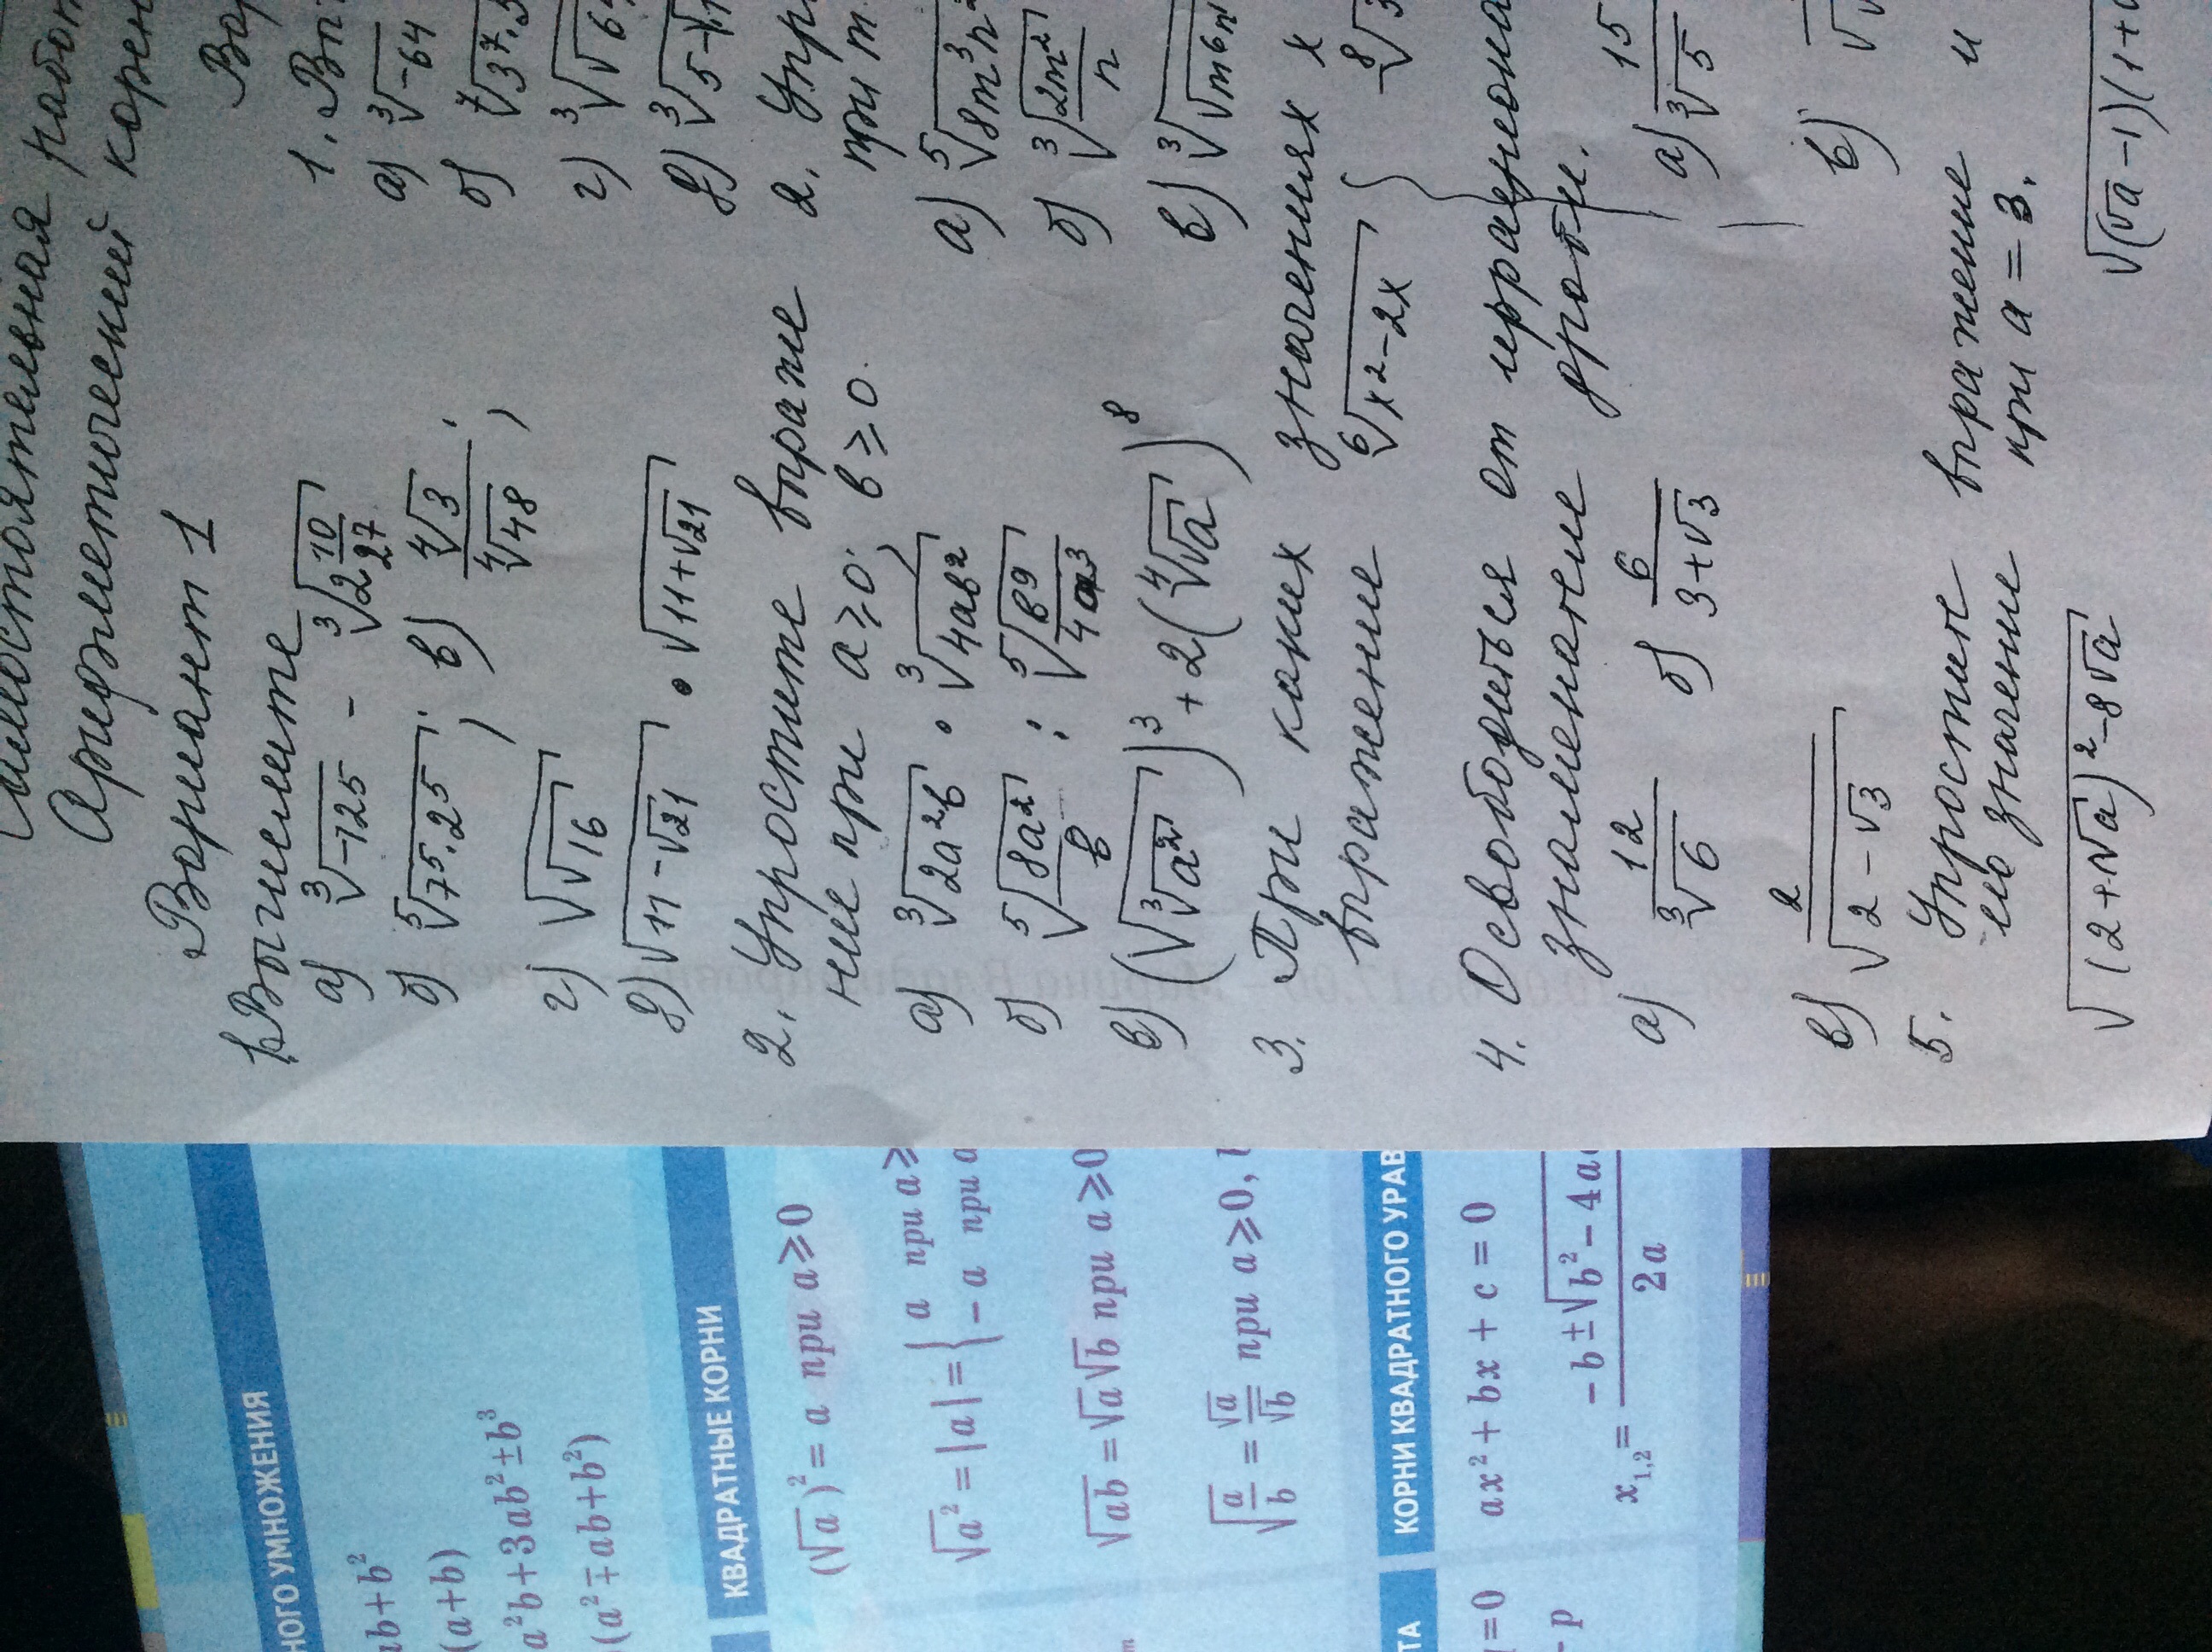 Самостоятельная работ
Арифметический корен
Вариант 1
1. Вычислите
а) ∛-125 - ∛2 10/27
б) ⁵√7⁵·2⁵; в) ⁴√3/⁴√48;
г) √√16
д) √11-√21 · √11+√21
2. Упростите выраже
ние при a ≥ 0; в ≥ 0.
а) ∛2a²в · ∛4aв²,
б) ⁵√8a²/в : ⁵√в⁹/4a³
в) (√∛a²)³ + 2(⁴√√a)⁸
3. При каких значениях x
выражение ⁶√x²-2x
4. Освободиться от иррациона
знаменатель дроби.
а) 12/∛6 б) 6/3+√3
в) 2/√2-√3
5. Упростите выражение и
его значение при a = 3.
√(2+√a)²-8√a
Ва
1. Вы
а) ∛-64
б) ⁷√3⁷·5
г) ∛√6
д) ∛5-√1
2. Упр
при m
а) ⁵√8m³n²
б) ∛2m²/n
в) ∛√m⁶n
⁸√3
а) 15/∛5
в)
√(√a-1)(1+
НОГО УМНОЖЕНИЯ
ab+b²
(a+b)
a²b+3ab²±b³
(a²∓ab+b²)
КВАДРАТНЫЕ КОРНИ
(√a)²=a при a≥0
√a²=|a|={ a при a≥
-a при a
√ab=√a√b при a≥0
√a/b=√a/√b при a≥0,
КОРНИ КВАДРАТНОГО УРАВ
ax²+bx+c=0
x₁,₂= -b±√b²-4a
2a
ТА
=0
-p